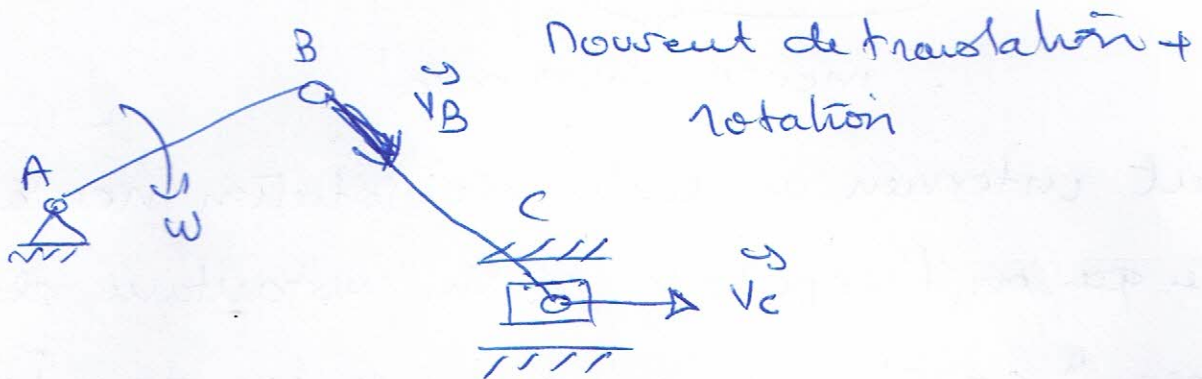 Mouvement de translation +
rotation
B
V_B
A
ω
C
V_C